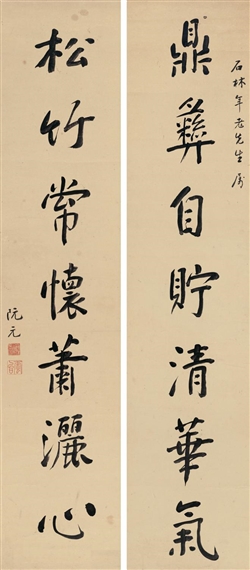 石林年老先生属
鼎彝自贮清華氣
松竹常懷蕭灑心
阮元